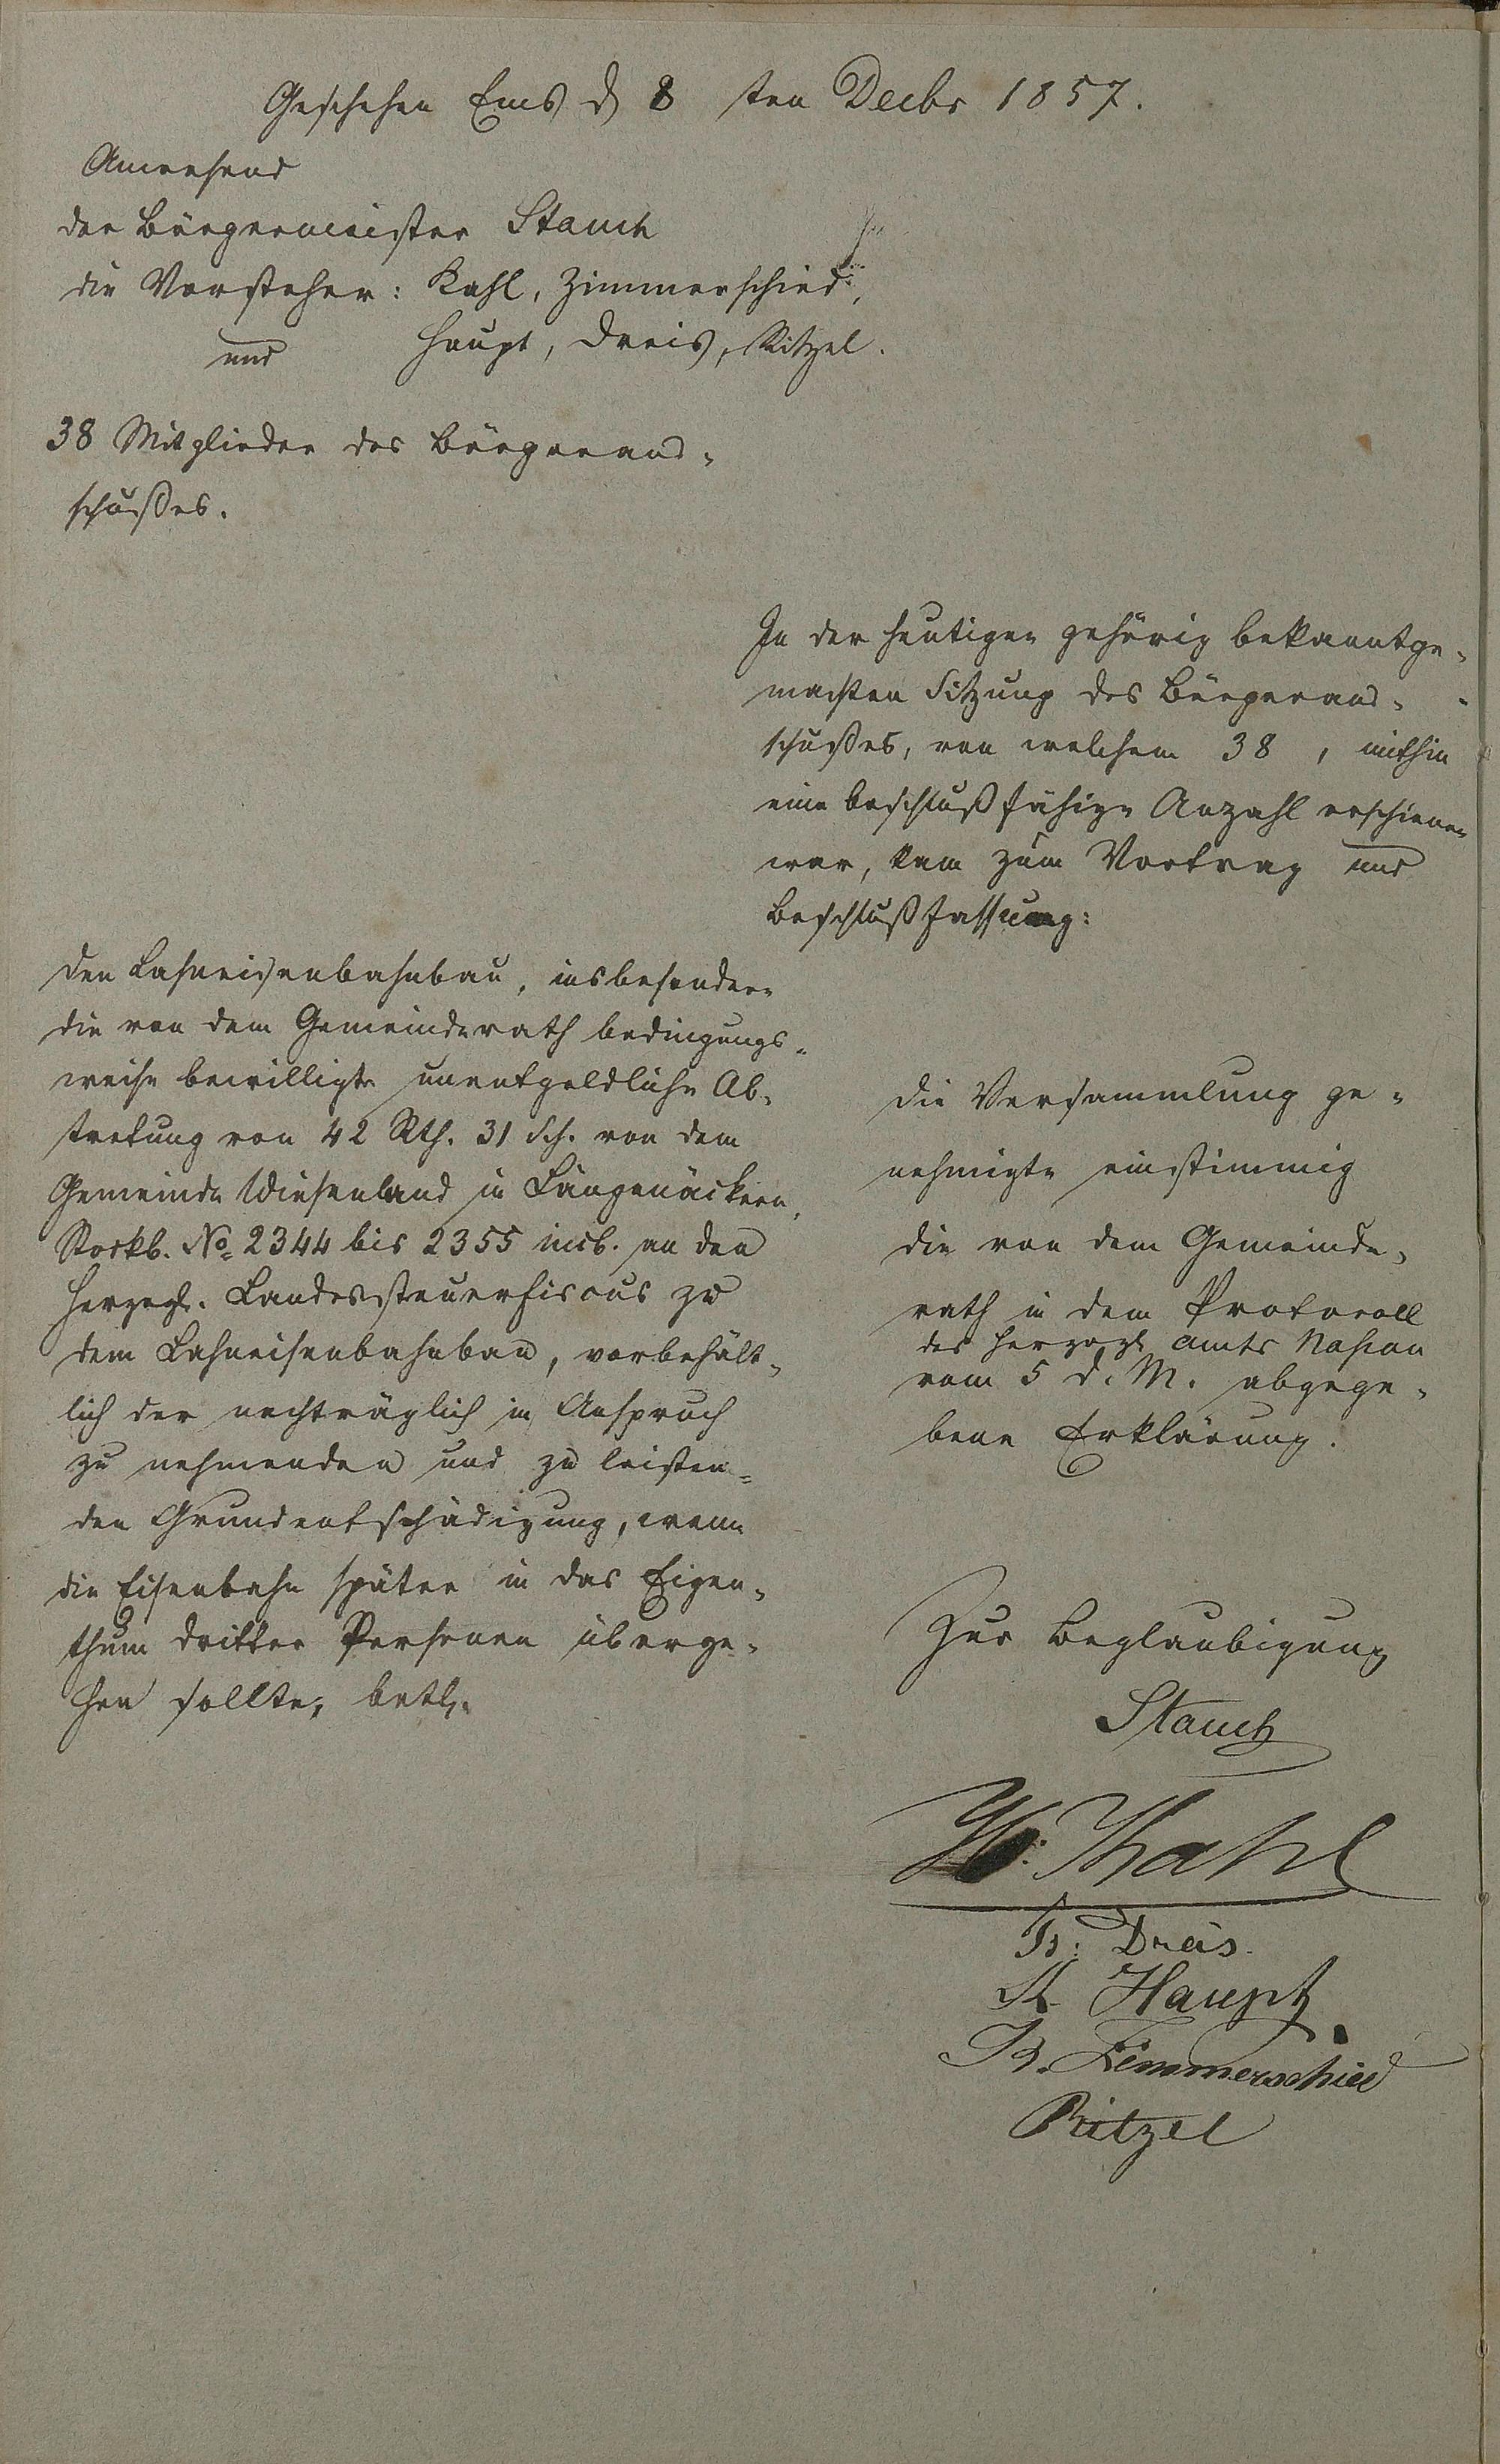 Geschehen Ems d 8 ten Decbr 1857.
Anwesend
der Bürgermeister Stauch
die Vorsteher: Kahl, Zimmerschied,
und Haupt, Dreis, Ritzel.
38 Mitglieder des Bürgeraus-
schußes.
In der heutigen gehörig bekanntge-
machten Sitzung des Bürgeraus-
schußes, von welchem 38, mithin
eine beschlußfähige Anzahl erschienen
war, kam zum Vortrag und
Beschlußfassung:
den Lahneisenbahnbau, insbesondere
die von dem Gemeinderath bedingungs-
weise bewilligte unentgeldliche Ab-
tretung von 42 Rth. 31 Sch. von dem
Gemeinde Wiesenland in Längenäckern,
Stockb. No 2344 bis 2355 incl. an den
Herzogl. Landessteuerfiscus zu
dem Lahneisenbahnbau, vorbehält-
lich der nachträglich in Anspruch
zu nehmenden und zu leisten-
den Grundentschädigung, wenn
die Eisenbahn später in das Eigen-
thum dritter Personen überge-
hen sollte, betr.
Die Versammlung ge-
nehmigte einstimmig
die von dem Gemeinde-
rath in dem Protocoll
des Herzogl Amts Nassau
vom 5 d. M. abgege-
bene Erklärung.
Zur Beglaubigung
Stauch
Kahl
Dreis.
Haupt
Zimmerschied
Ritzel